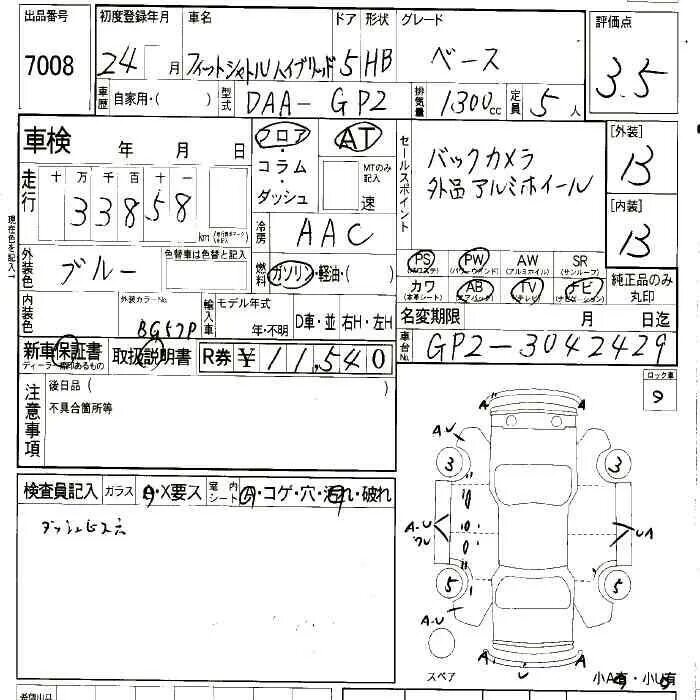 出品番号 初度登録年月 車名 ドア 形状 グレード 評価点
7008 24 月 フィットシャトルハイブリッド 5 HB ベース 3.5
車歴 自家用・( ) 型式 DAA-GP2 排気量 1300cc 定員 5人
車検 年 月 日 フロア・コラム・ダッシュ AT MTのみ記入 速
セールスポイント バックカメラ
外品アルミホイール
[外装] B
[内装] B
走行 十 万 千 百 十 一
33858 km
冷房 AAC
現在色を記入
外装色 ブルー 色替車は色替と記入 燃料 ガソリン・軽油・( )
PS (パワステ) PW (パワーウインド) AW (アルミホイル) SR (サンルーフ)
カワ (本革シート) AB (エアバック) TV (テレビ) ナビ (ナビゲーション) 純正品のみ丸印
内装色 外装カラーNo. BG57P 輸入車 モデル年式 年・不明 D車・並 右H・左H
名変期限 月 日迄
新車保証書 取扱説明書 R券 ¥11,540
車台No. GP2-3042429
ロック車
注意事項 後日品( )
不具合箇所等
検査員記入 ガラス A・X要ス 室内シート A・コゲ・穴・汚れ・破れ
ダッシュビス穴
A A
A-U
3 3
A-U UA
5 5
A-U
A U A
スペア 小A有・小U有
希望出品